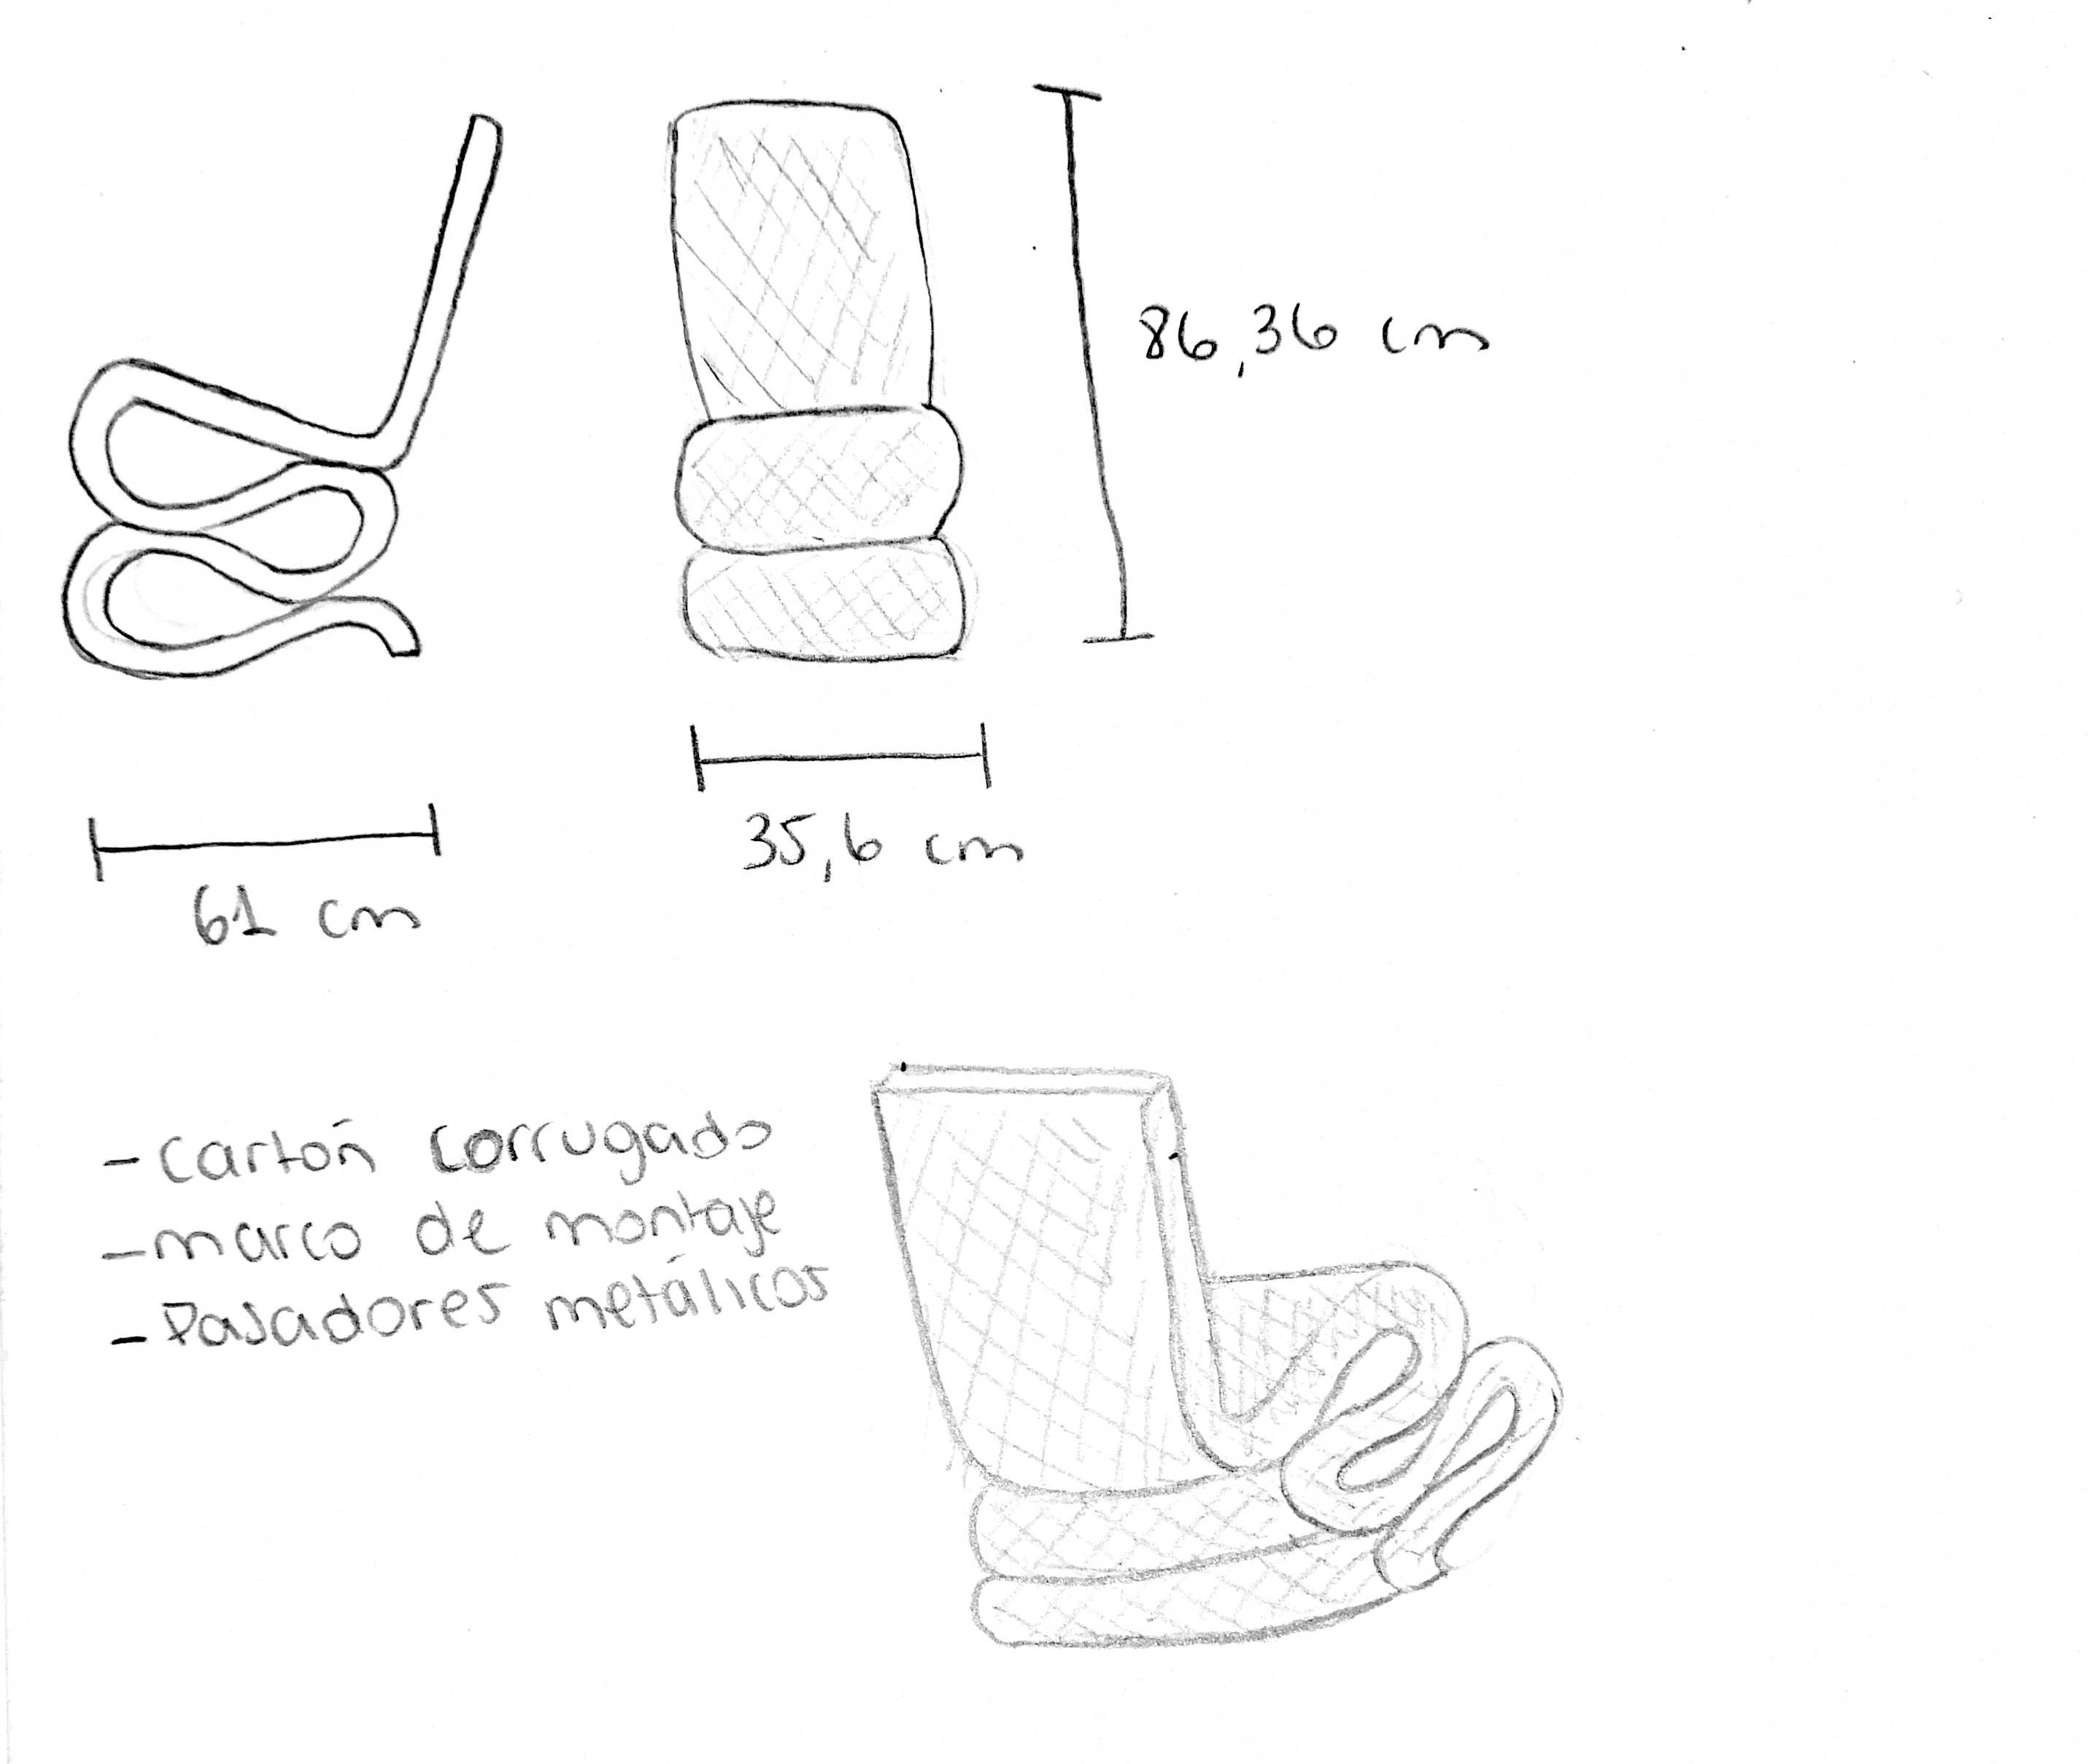 86,36 cm
35,6 cm
61 cm
- Cartón corrugado
- marco de montaje
- Pasadores metálicos